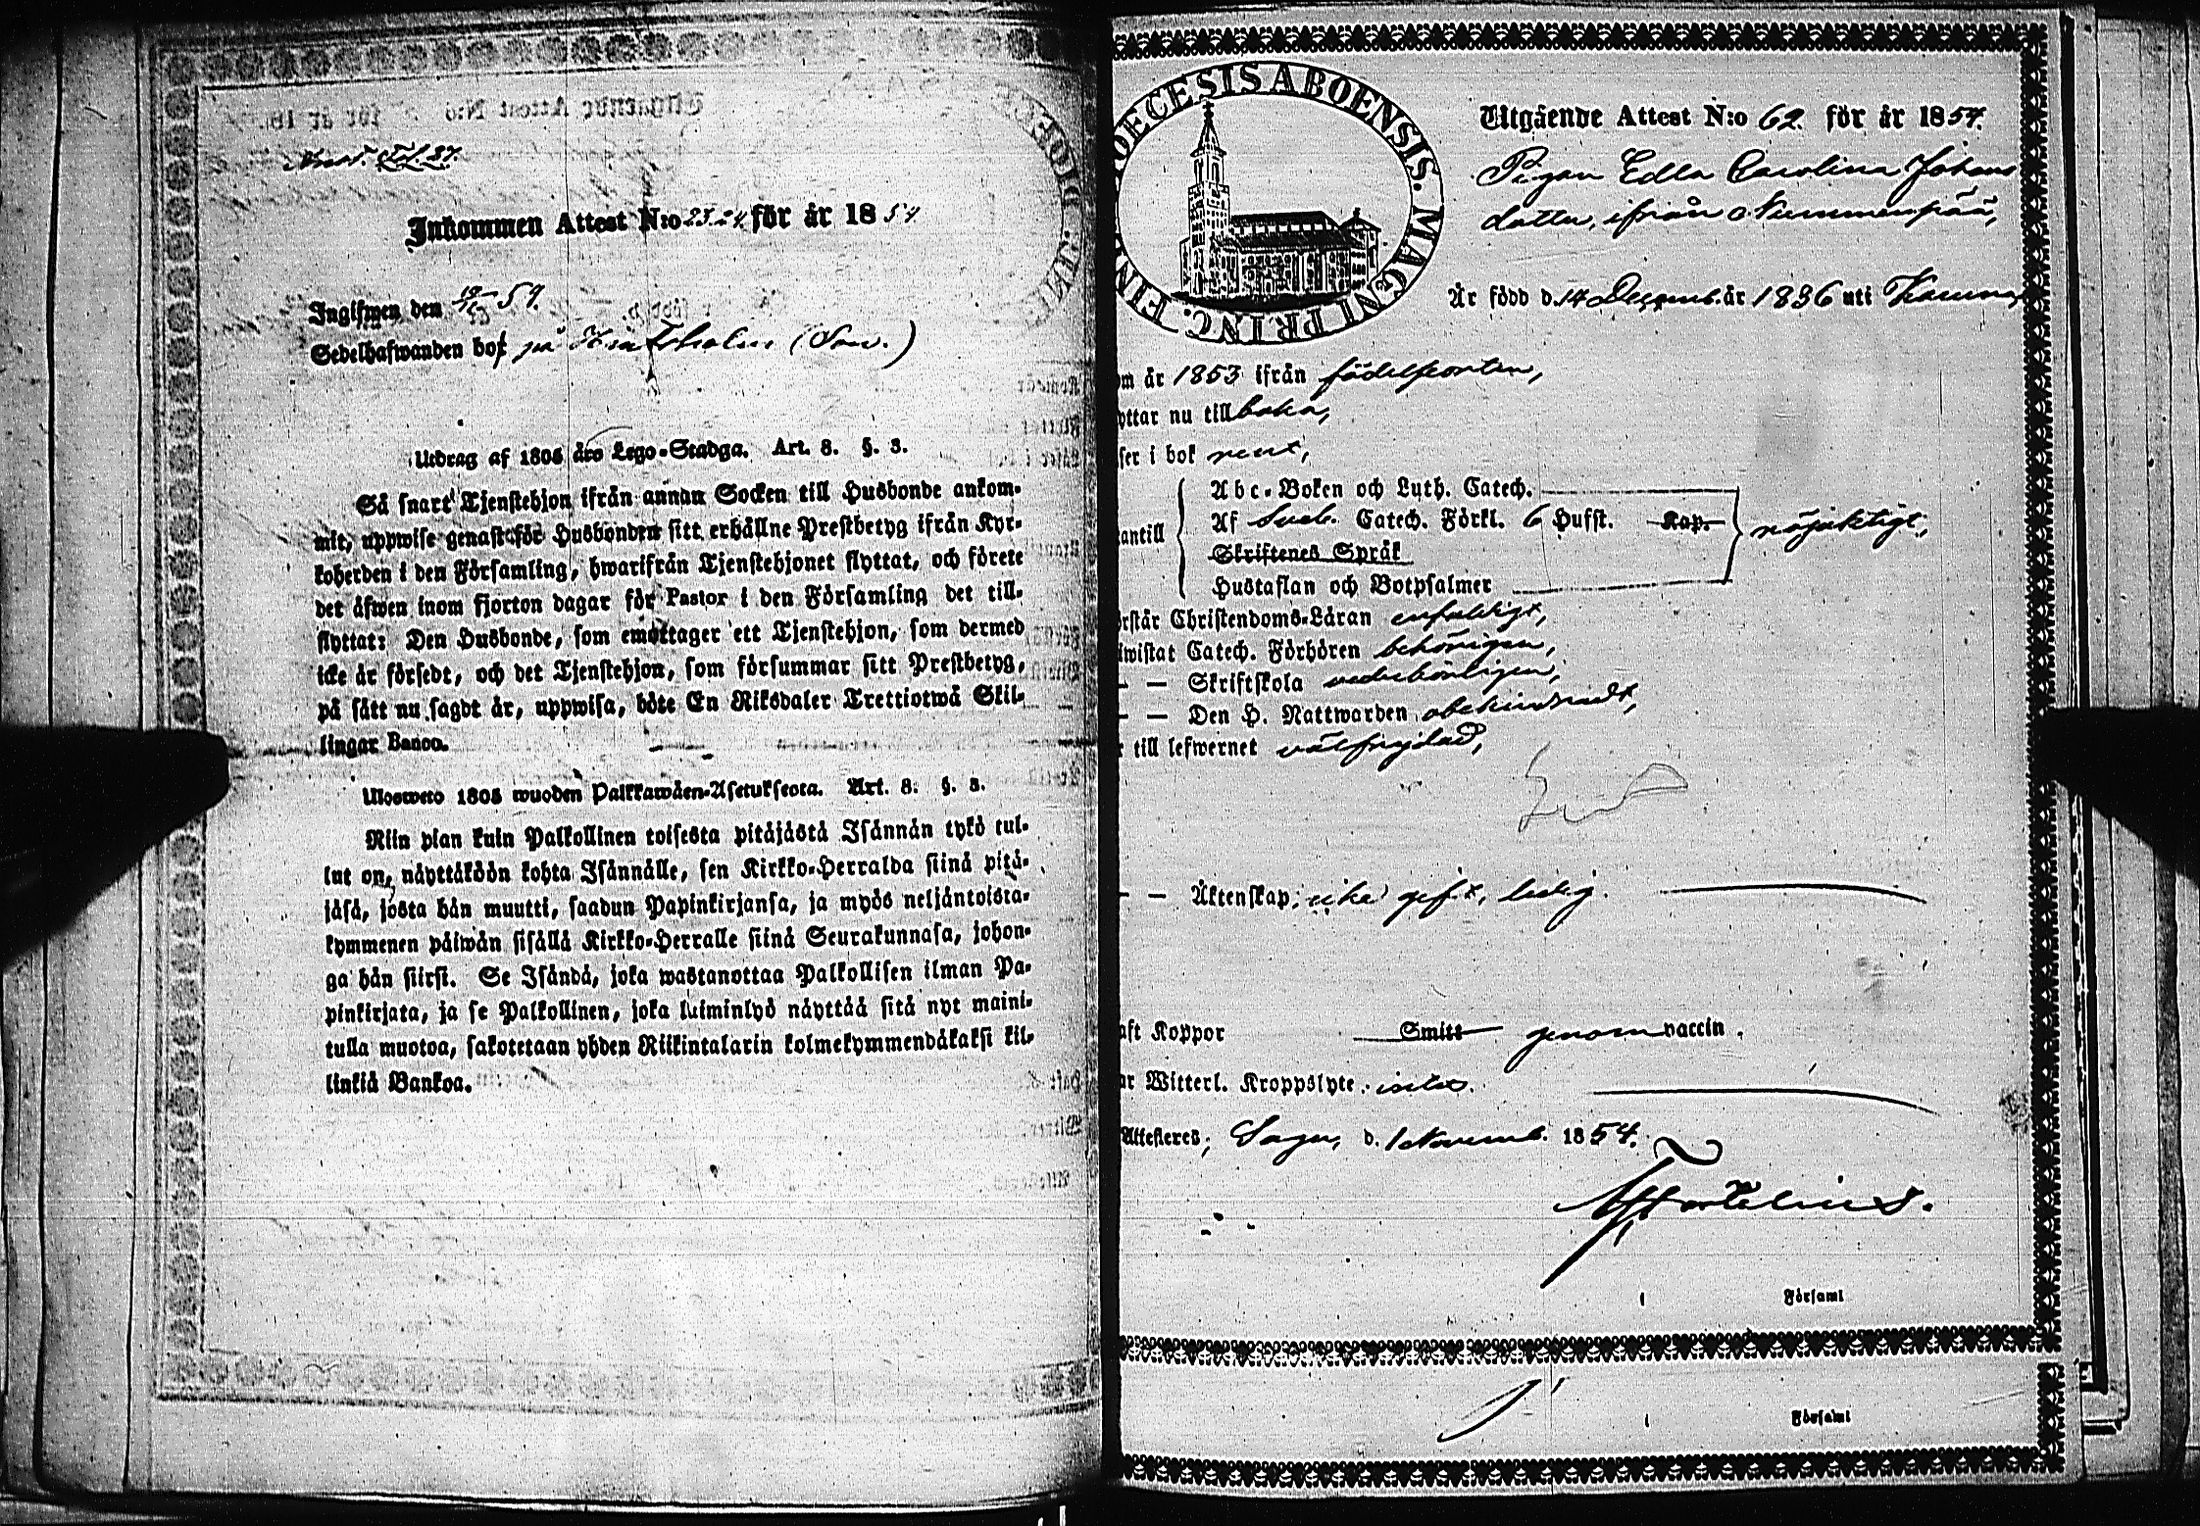 Inkommen Attest N:o 23.24. för år 1854
Ingifwen den 19/11 54.
Sedelhafwanden bos på
Utdrag af 1805 års Lego-Stadga. Art. 8. §. 3.
Så snart Tjenstehjon ifrån annan Socken till Husbonde ankom-
mit, uppwise genast för Husbonden sitt erhållne Prestbetyg ifrån Kyr-
koherden i den Församling, hwarifrån Tjenstehjonet flyttat, och förete
det äfwen inom fjorton dagar för Pastor i den Församling det till-
flyttat: Den Husbonde, som emottager ett Tjenstehjon, som dermed
icke är försedt, och det Tjenstehjon, som försummar sitt Prestbetyg,
på sätt nu sagdt är, uppwisa, böte En Riksdaler Trettiotwå Skil-
lingar Banco.
Ulosweto 1805 wuoden Palkkawäen-Asetuksesta. Art. 8: §. 3.
Niin pian kuin Palkollinen toisesta pitäjästä Isännän tykö tul-
lut on, näyttäköön kohta Isännälle, sen Kirkko-Herralda siinä pitä-
jäsä, josta hän muutti, saadun Papinkirjansa, ja myös neljäntoista-
kymmenen päiwän sisällä Kirkko-Herralle siinä Seurakunnasa, johon-
ga hän siirsi. Se Isändä, joka wastanottaa Palkollisen ilman Pa-
pinkirjata, ja se Palkollinen, joka laiminlyö näyttää sitä nyt maini-
tulla muotoa, sakotetaan yhden Riikintalarin kolmekymmendäkaksi kil-
linkiä Bankoa.
DIOECESIS ABOENSIS. MAGNI PRINC. FINL
Utgående Attest N:o 62. för år 1854.
Pigan Edla Carolina Johans
dotter, ifrån Nummenpää,
Är född d. 14 Decemb. år 1836 uti
om år 1853 ifrån födelseorten,
yttar nu tillbaka,
ser i bok rent,
antill
Abc-Boken och Luth. Catech.
Af Sveb. Catech. Förkl. 6 Hufst. Kap. nöjaktigt,
Skriftenes Språk
Hustaflan och Botpsalmer
rstår Christendoms-Läran enfaldigt,
iwistat Catech. Förhören behörigen,
— — Skriftskola vederbörligen,
— — Den H. Nattwarden obehindradt,
r till lefwernet välfrejdad,
— — Äktenskap; icke gift, ledig.
aft Koppor Smitt genom vaccin.
ar Witterl. Kroppslyte. intet.
Attesteres; Sagu, d. 1 Novemb. 1854.
i Församl
i Församl